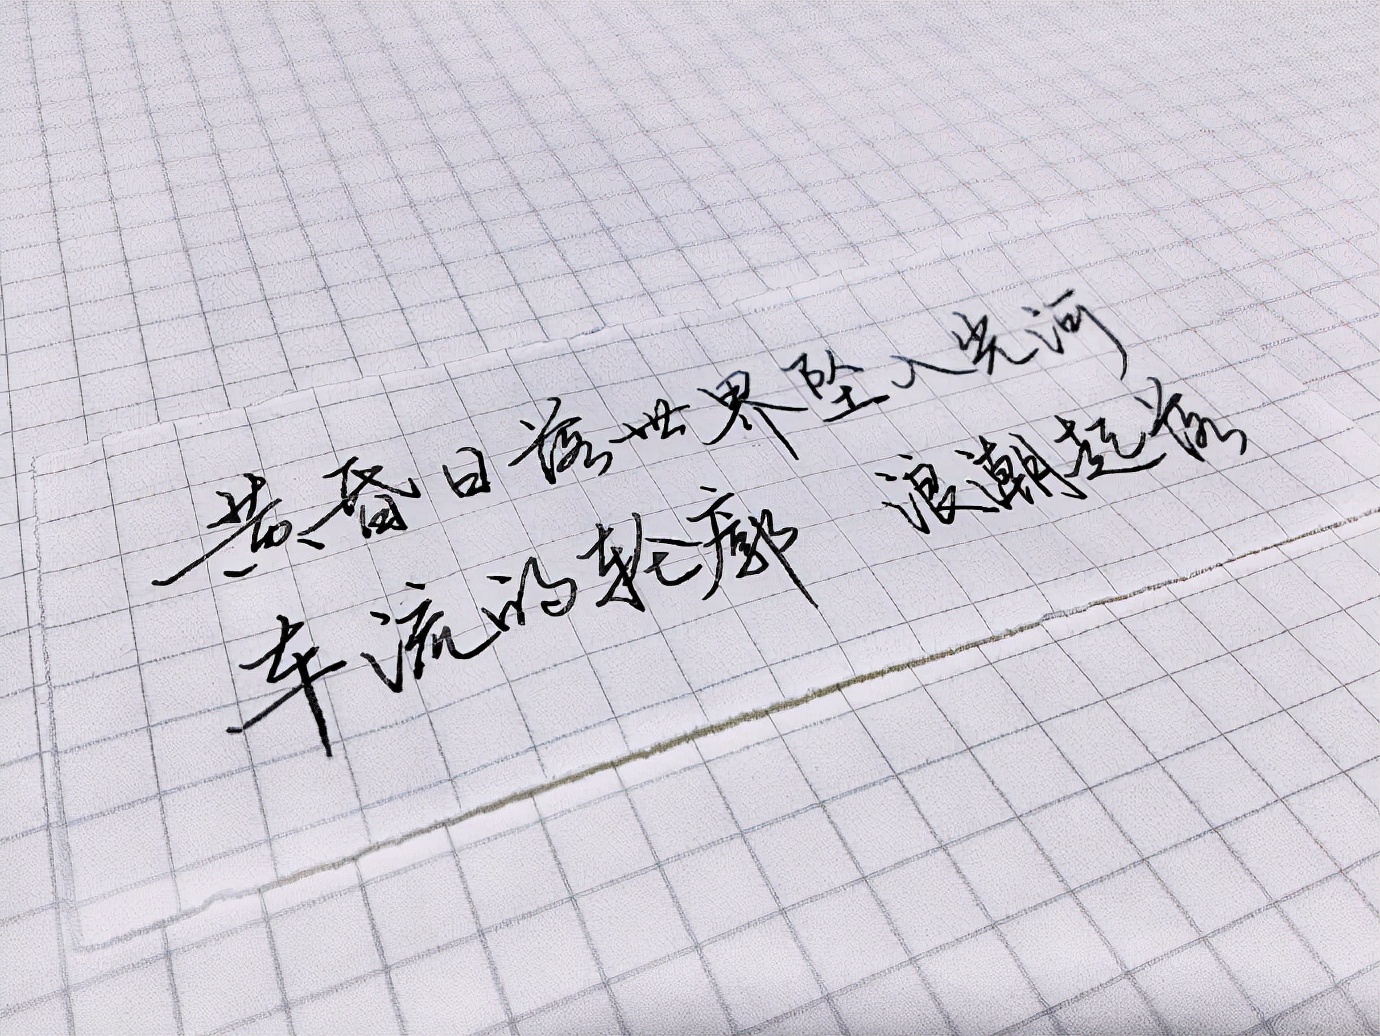 黄昏日落世界坠入光河
车流的轮廓 浪潮起落